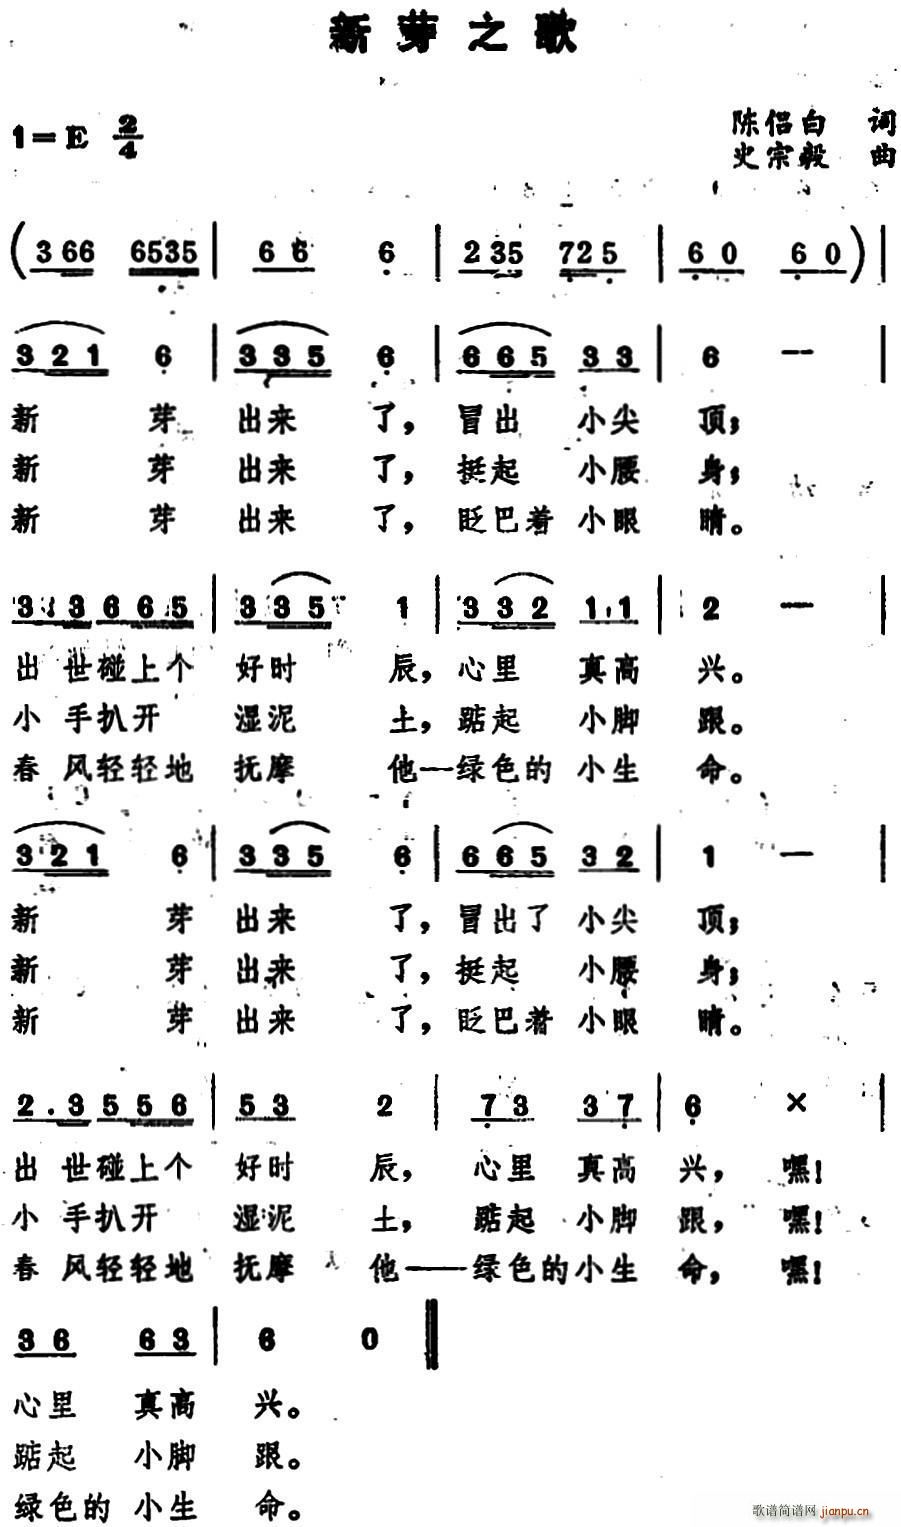 新芽之歌
1=E 2/4
陈侣白 词
史宗毅 曲
(3 66 6535 | 6 6 6 | 2 35 725 | 6 0 6 0) |
3 2 1 6 | 3 3 5 6 | 6 6 5 3 3 | 6 -- |
新 芽 出来 了, 冒出 小尖 顶;
新 芽 出来 了, 挺起 小腰 身;
新 芽 出来 了, 眨巴着 小眼 睛。
3 3 6 6 5 | 3 3 5 1 | 3 3 2 1 1 | 2 — |
出 世碰上个 好时 辰, 心里 真高 兴。
小 手扒开 湿泥 土, 踮起 小脚 跟。
春 风轻轻地 抚摩 他—绿色的 小生 命。
3 2 1 6 | 3 3 5 6 | 6 6 5 3 2 | 1 — |
新 芽 出来 了, 冒出了 小尖 顶;
新 芽 出来 了, 挺起 小腰 身;
新 芽 出来 了, 眨巴着 小眼 睛。
2. 3 5 5 6 | 5 3 2 | 7 3 3 7 | 6 × |
出 世碰上个 好时 辰, 心里 真高 兴, 嘿!
小 手扒开 湿泥 土, 踮起 小脚 跟, 嘿!
春 风轻轻地 抚摩 他——绿色的小生 命, 嘿!
3 6 6 3 | 6 0 ‖
心里 真高 兴。
踮起 小脚 跟。
绿色的 小生 命。
歌谱简谱网 jianpu.cn